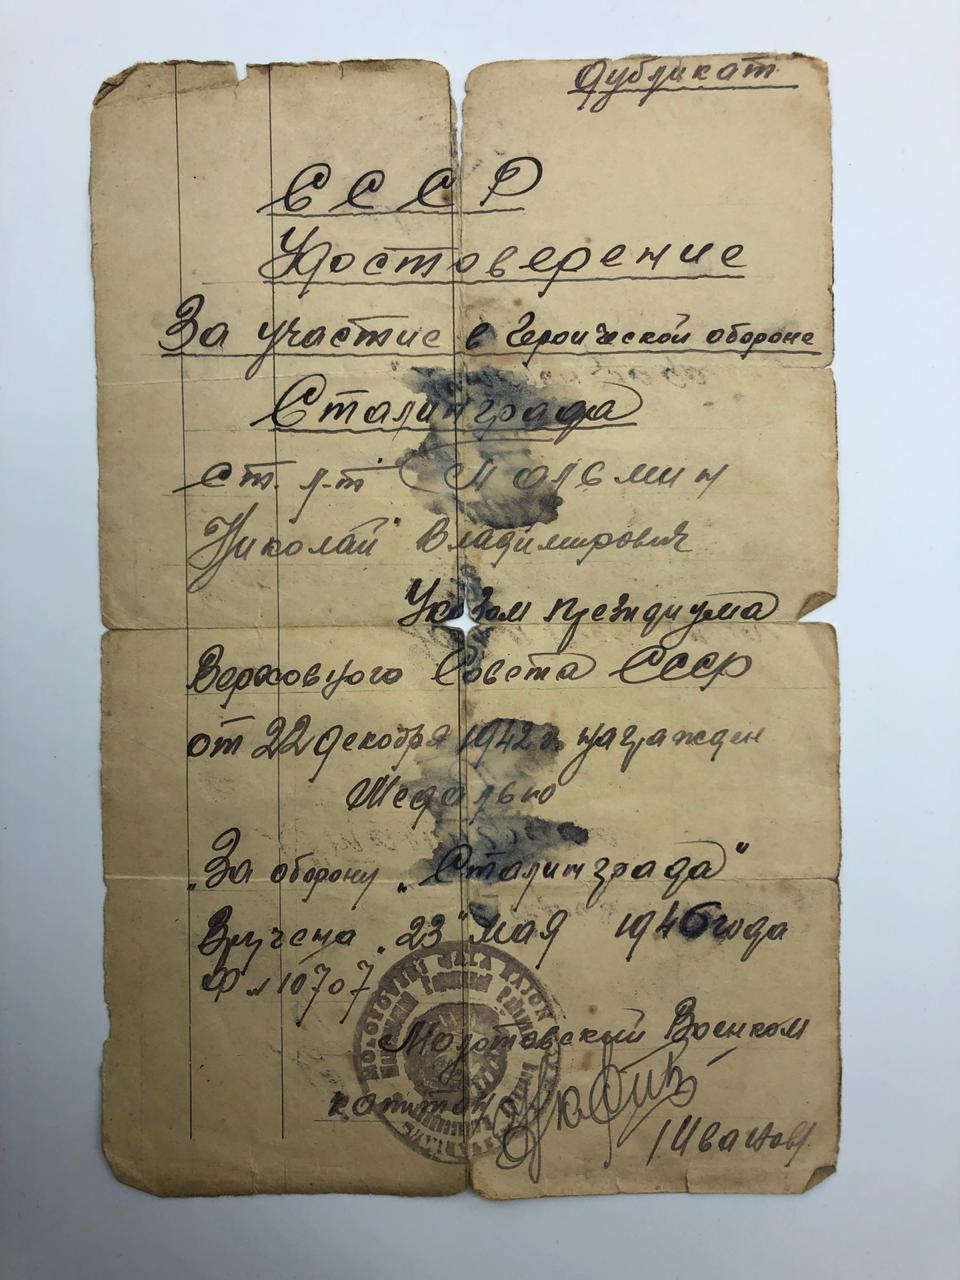 Дубликат
СССР
Удостоверение
За участие в Героической обороне
Сталинграда
ст. л-т Мольмин
Николай Владимирович
Указом президиума
Верховного Совета СССР
от 22 декабря 1942 г. награжден
Медалью
„За оборону „Сталинграда"
Вручена „23" мая 1946 года
Ф л 10707
MOLOTOVSKI RAJON
Молотовский Военком
капитан
/Иванов/